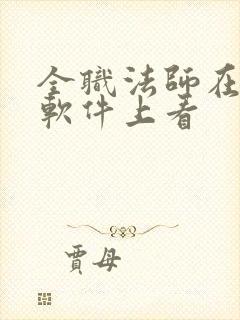 全職法師在
軟件上看
賈母